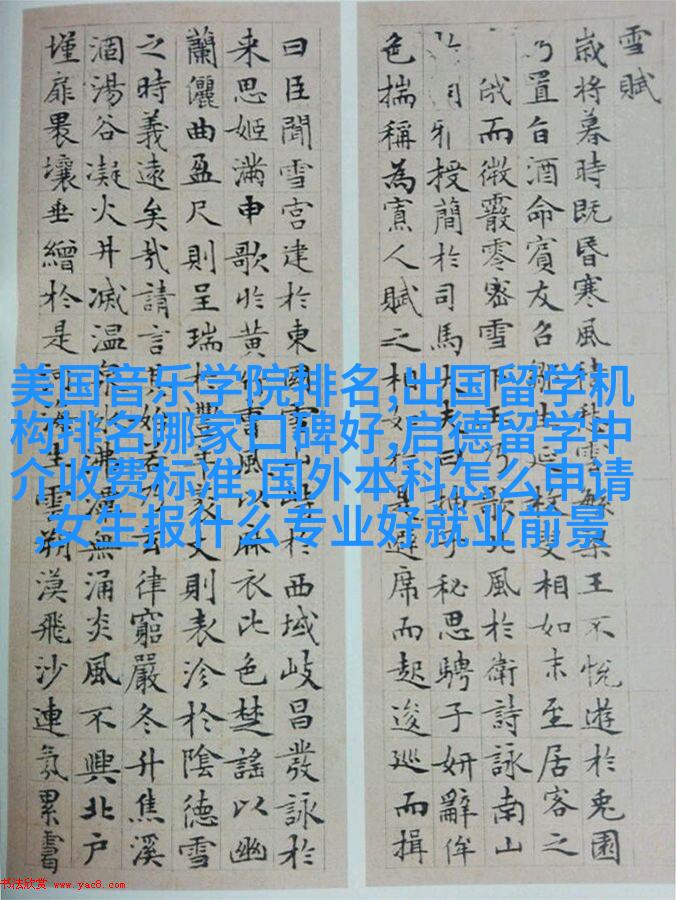 雪賦
歲將暮時既昏寒風積愁雲繁梁王不悅遊於兔園
乃置旨酒命賓友召鄒生延枚叟相如末至居客之
俄而微霰零密雪下王乃歌北風於衛詩詠南山
雅授簡於司馬大夫曰抽子秘思騁子妍辭侔
色揣稱為寡人賦之相如於是避席而起逡巡而揖
曰臣聞雪宮建於東國雪山峙於西域岐昌發詠於
来思姬滿申歌於黃竹曹風以麻衣比色楚謠以幽
蘭儷曲盈尺則呈瑞於豐年袤丈則表沴於陰德雪
之時義遠矣哉請言其始若乃玄律窮嚴冬升焦溪
涸湯谷凝火井滅温泉冰沸潭無涌炎風不興北户
墐扉壤垂繒於是河海生雲朔漠飛沙連氛累靄
美国音乐学院排名,出国留学机
构排名哪家口碑好,启德留学中
介收费标准,国外本科怎么申请
,女生报什么专业好就业前景
书法欣赏 www.yac8.com